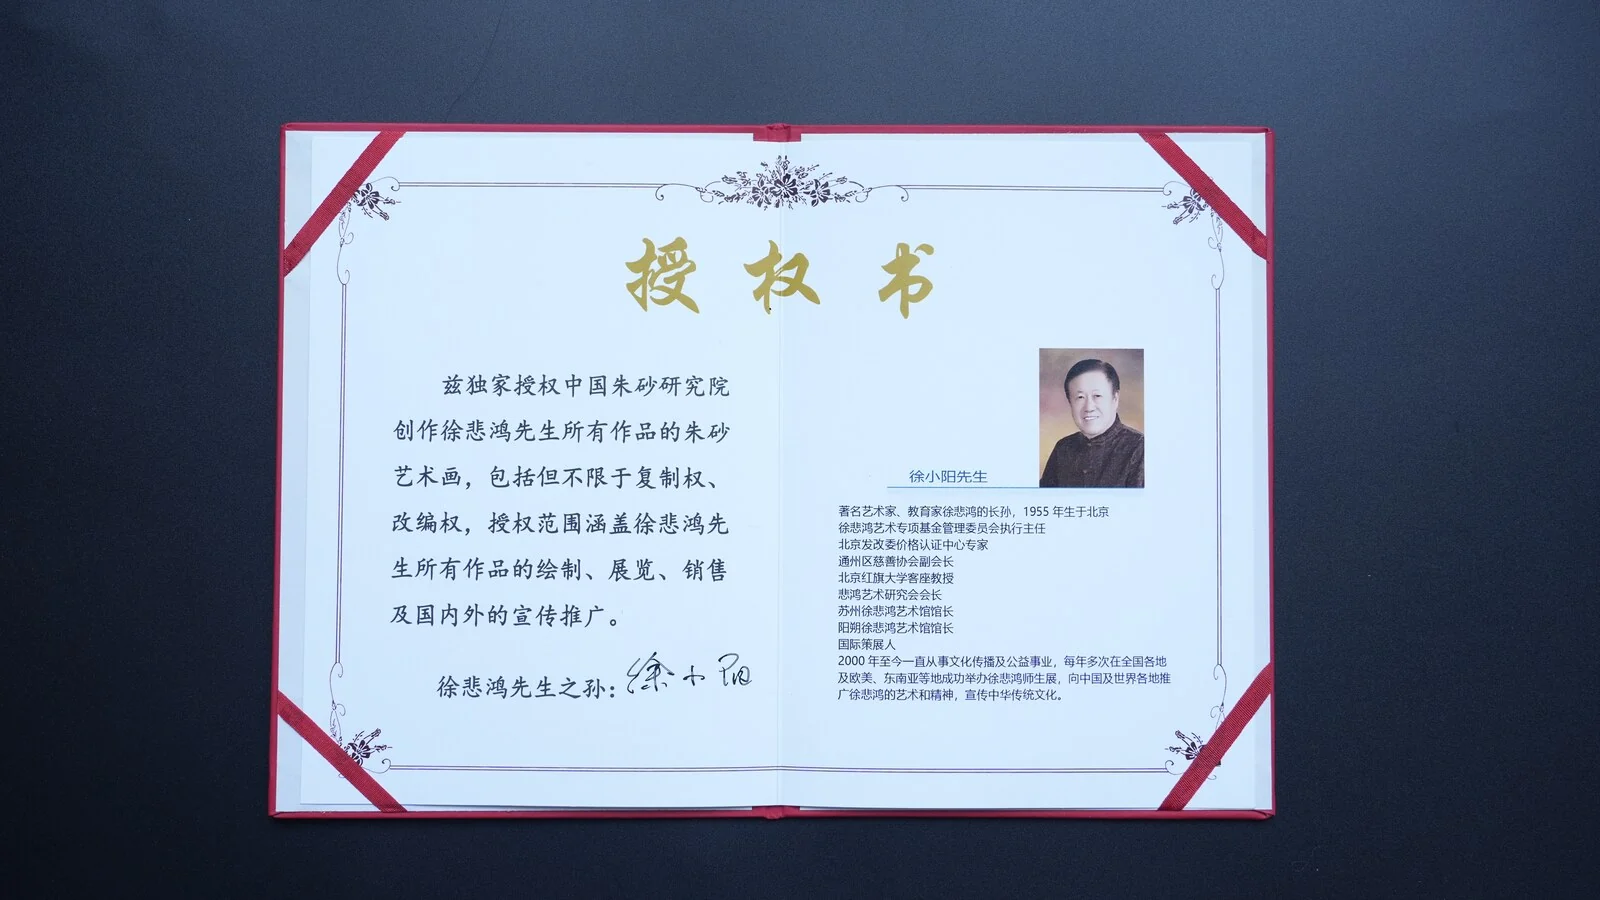 授权书
兹独家授权中国朱砂研究院
创作徐悲鸿先生所有作品的朱砂
艺术画，包括但不限于复制权、
改编权，授权范围涵盖徐悲鸿先
生所有作品的绘制、展览、销售
及国内外的宣传推广。
徐悲鸿先生之孙：徐小阳
徐小阳先生
著名艺术家、教育家徐悲鸿的长孙，1955年生于北京
徐悲鸿艺术专项基金管理委员会执行主任
北京发改委价格认证中心专家
通州区慈善协会副会长
北京红旗大学客座教授
悲鸿艺术研究会会长
苏州徐悲鸿艺术馆馆长
阳朔徐悲鸿艺术馆馆长
国际策展人
2000年至今一直从事文化传播及公益事业，每年多次在全国各地
及欧美、东南亚等地成功举办徐悲鸿师生展，向中国及世界各地推
广徐悲鸿的艺术和精神，宣传中华传统文化。